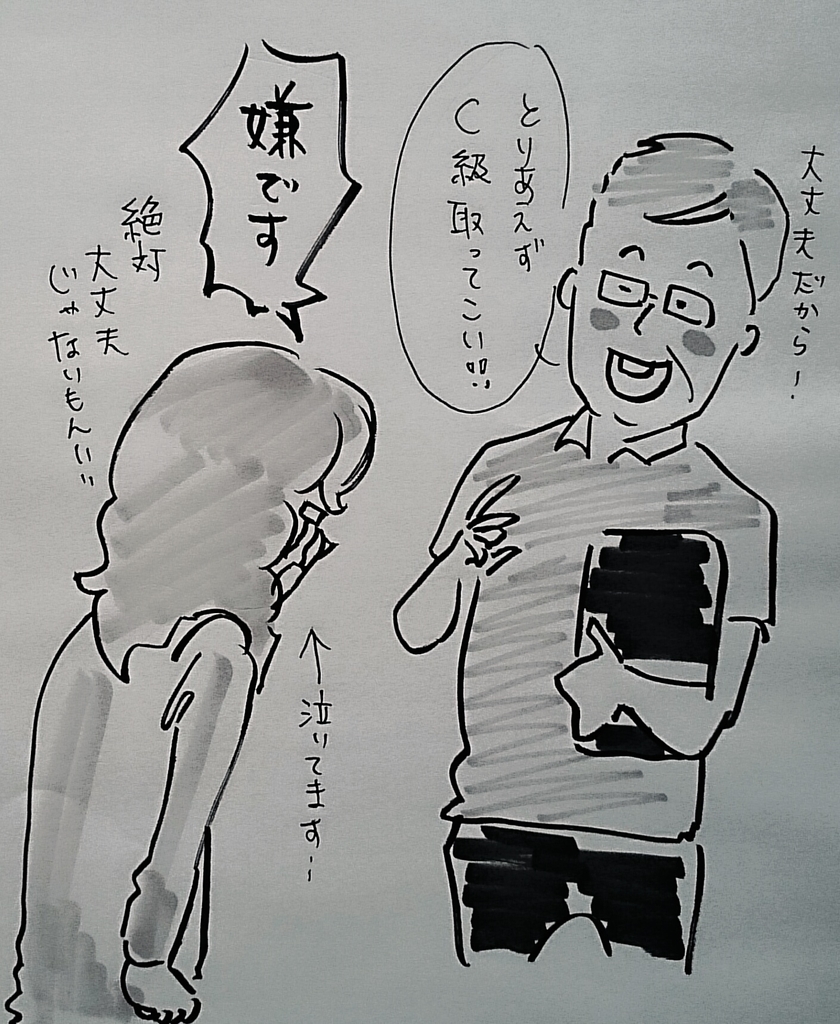 大丈夫だから!
とりあえず
C級取ってこい!!
嫌です
絶対
大丈夫
じゃないもんいい
↑泣いてます!